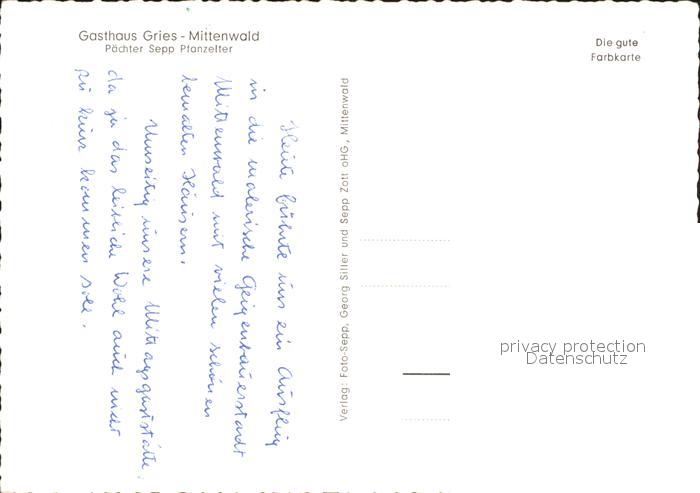 Gasthaus Gries - Mittenwald
Pächter Sepp Pfanzelter
Die gute
Farbkarte
Heute führte uns ein Ausflug
in die malerische Geigenbauerstadt
Mittenwald mit vielen schönen
bemalten Häusern.
Umseitig unsere Mittagsgaststätte,
da ja das leibliche Wohl auch nicht
zu kurz kommen soll.
Verlag: Foto-Sepp, Georg Siller und Sepp Zott oHG, Mittenwald
privacy protection
Datenschutz